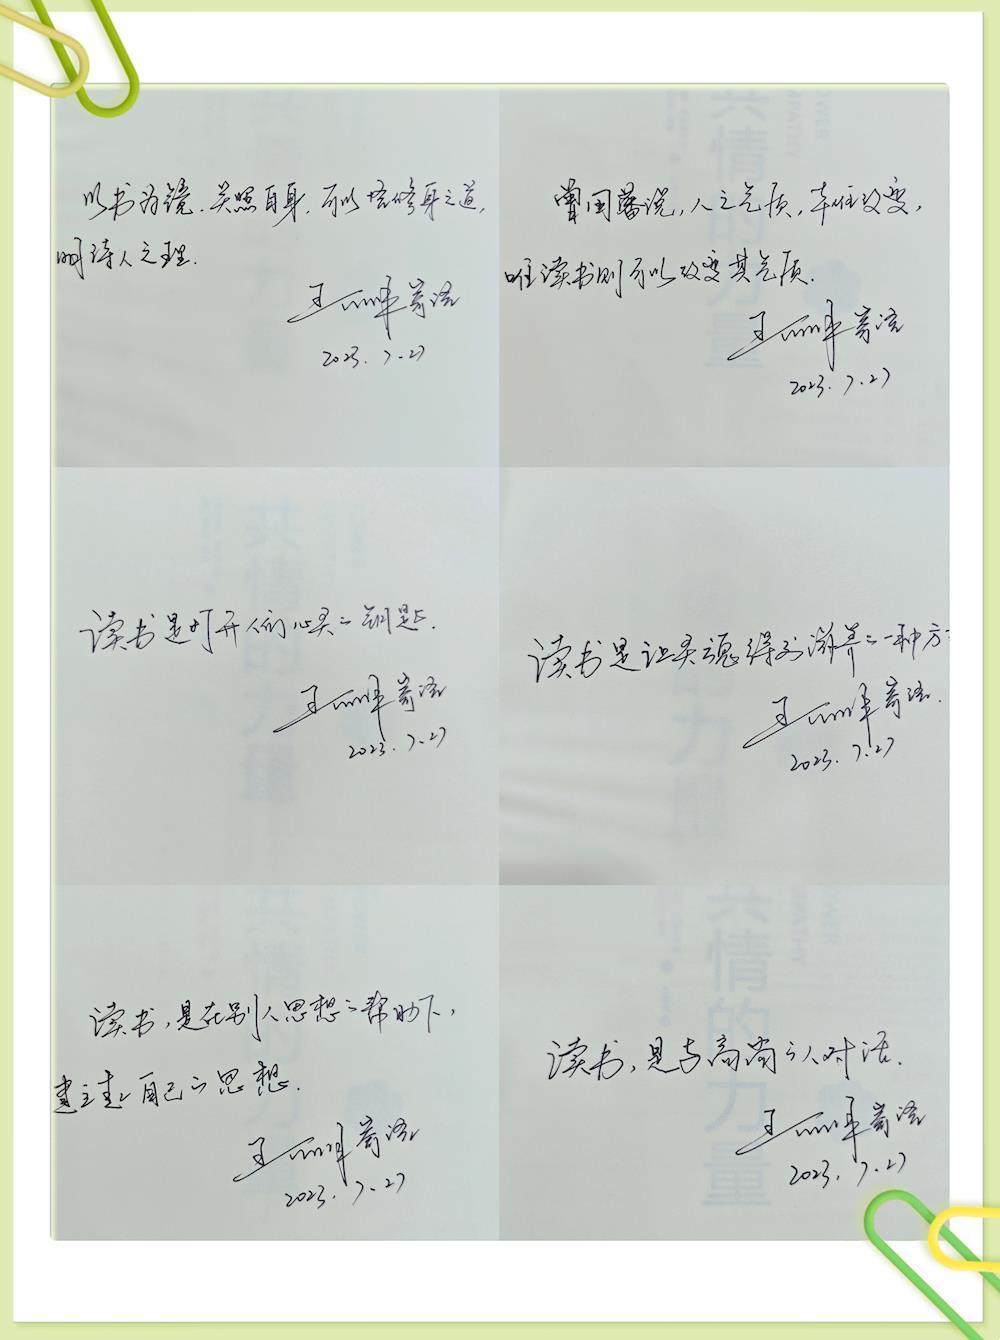 以书为镜,关照自身,可以悟修身之道,
明待人之理.
寄语
2023.7.27
曾国藩说,人之气质,本难改变,
唯读书则可以改变其气质.
寄语
2023.7.27
读书是打开人们心灵的钥匙.
寄语
2023.7.27
读书是让灵魂得到滋养的一种方
寄语.
2023.7.27
读书,是在别人思想的帮助下,
建立起自己的思想.
寄语
2023.7.27
读书,是与高尚的人对话.
寄语
2023.7.27
共情的力量